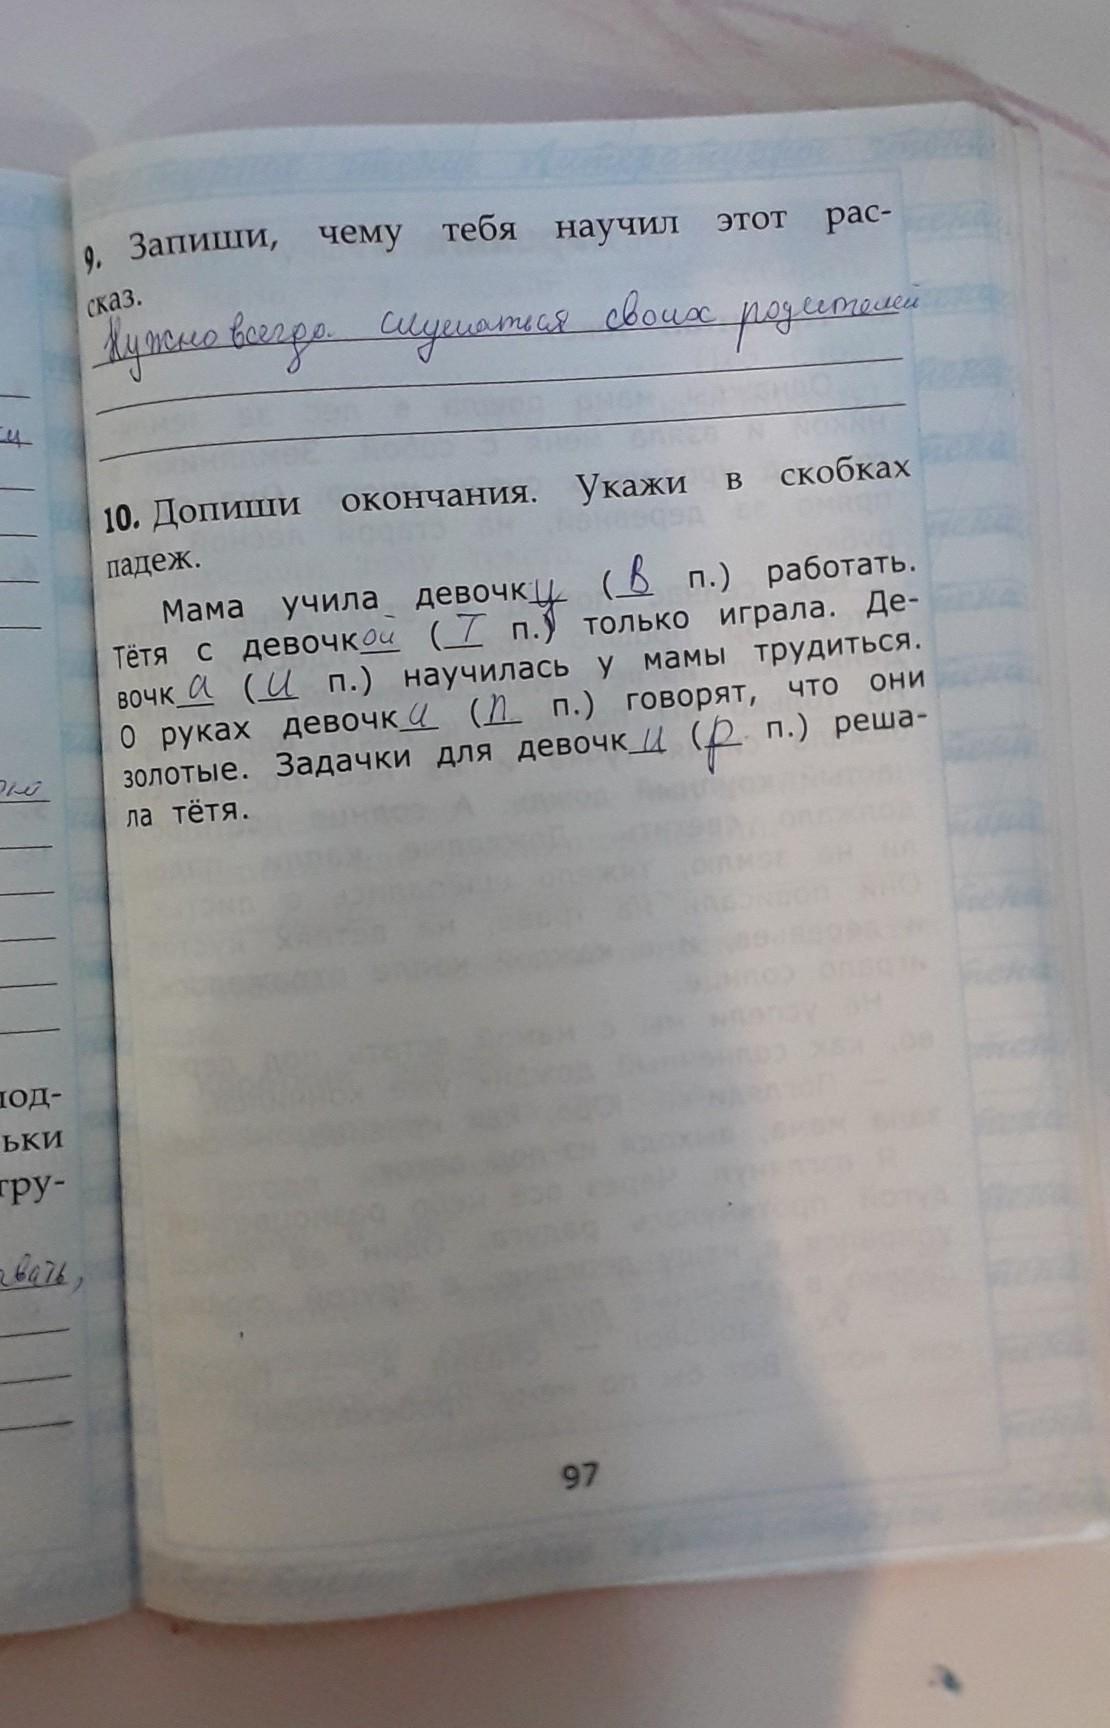 9. Запиши, чему тебя научил этот рас-
сказ.
Нужно всегда слушаться своих родителей
10. Допиши окончания. Укажи в скобках
падеж.
Мама учила девочку (В п.) работать.
Тётя с девочкой (Т п.) только играла. Де-
вочка (И п.) научилась у мамы трудиться.
О руках девочки (П п.) говорят, что они
золотые. Задачки для девочки (р п.) реша-
ла тётя.
97
под-
ьки
тру-
авать,